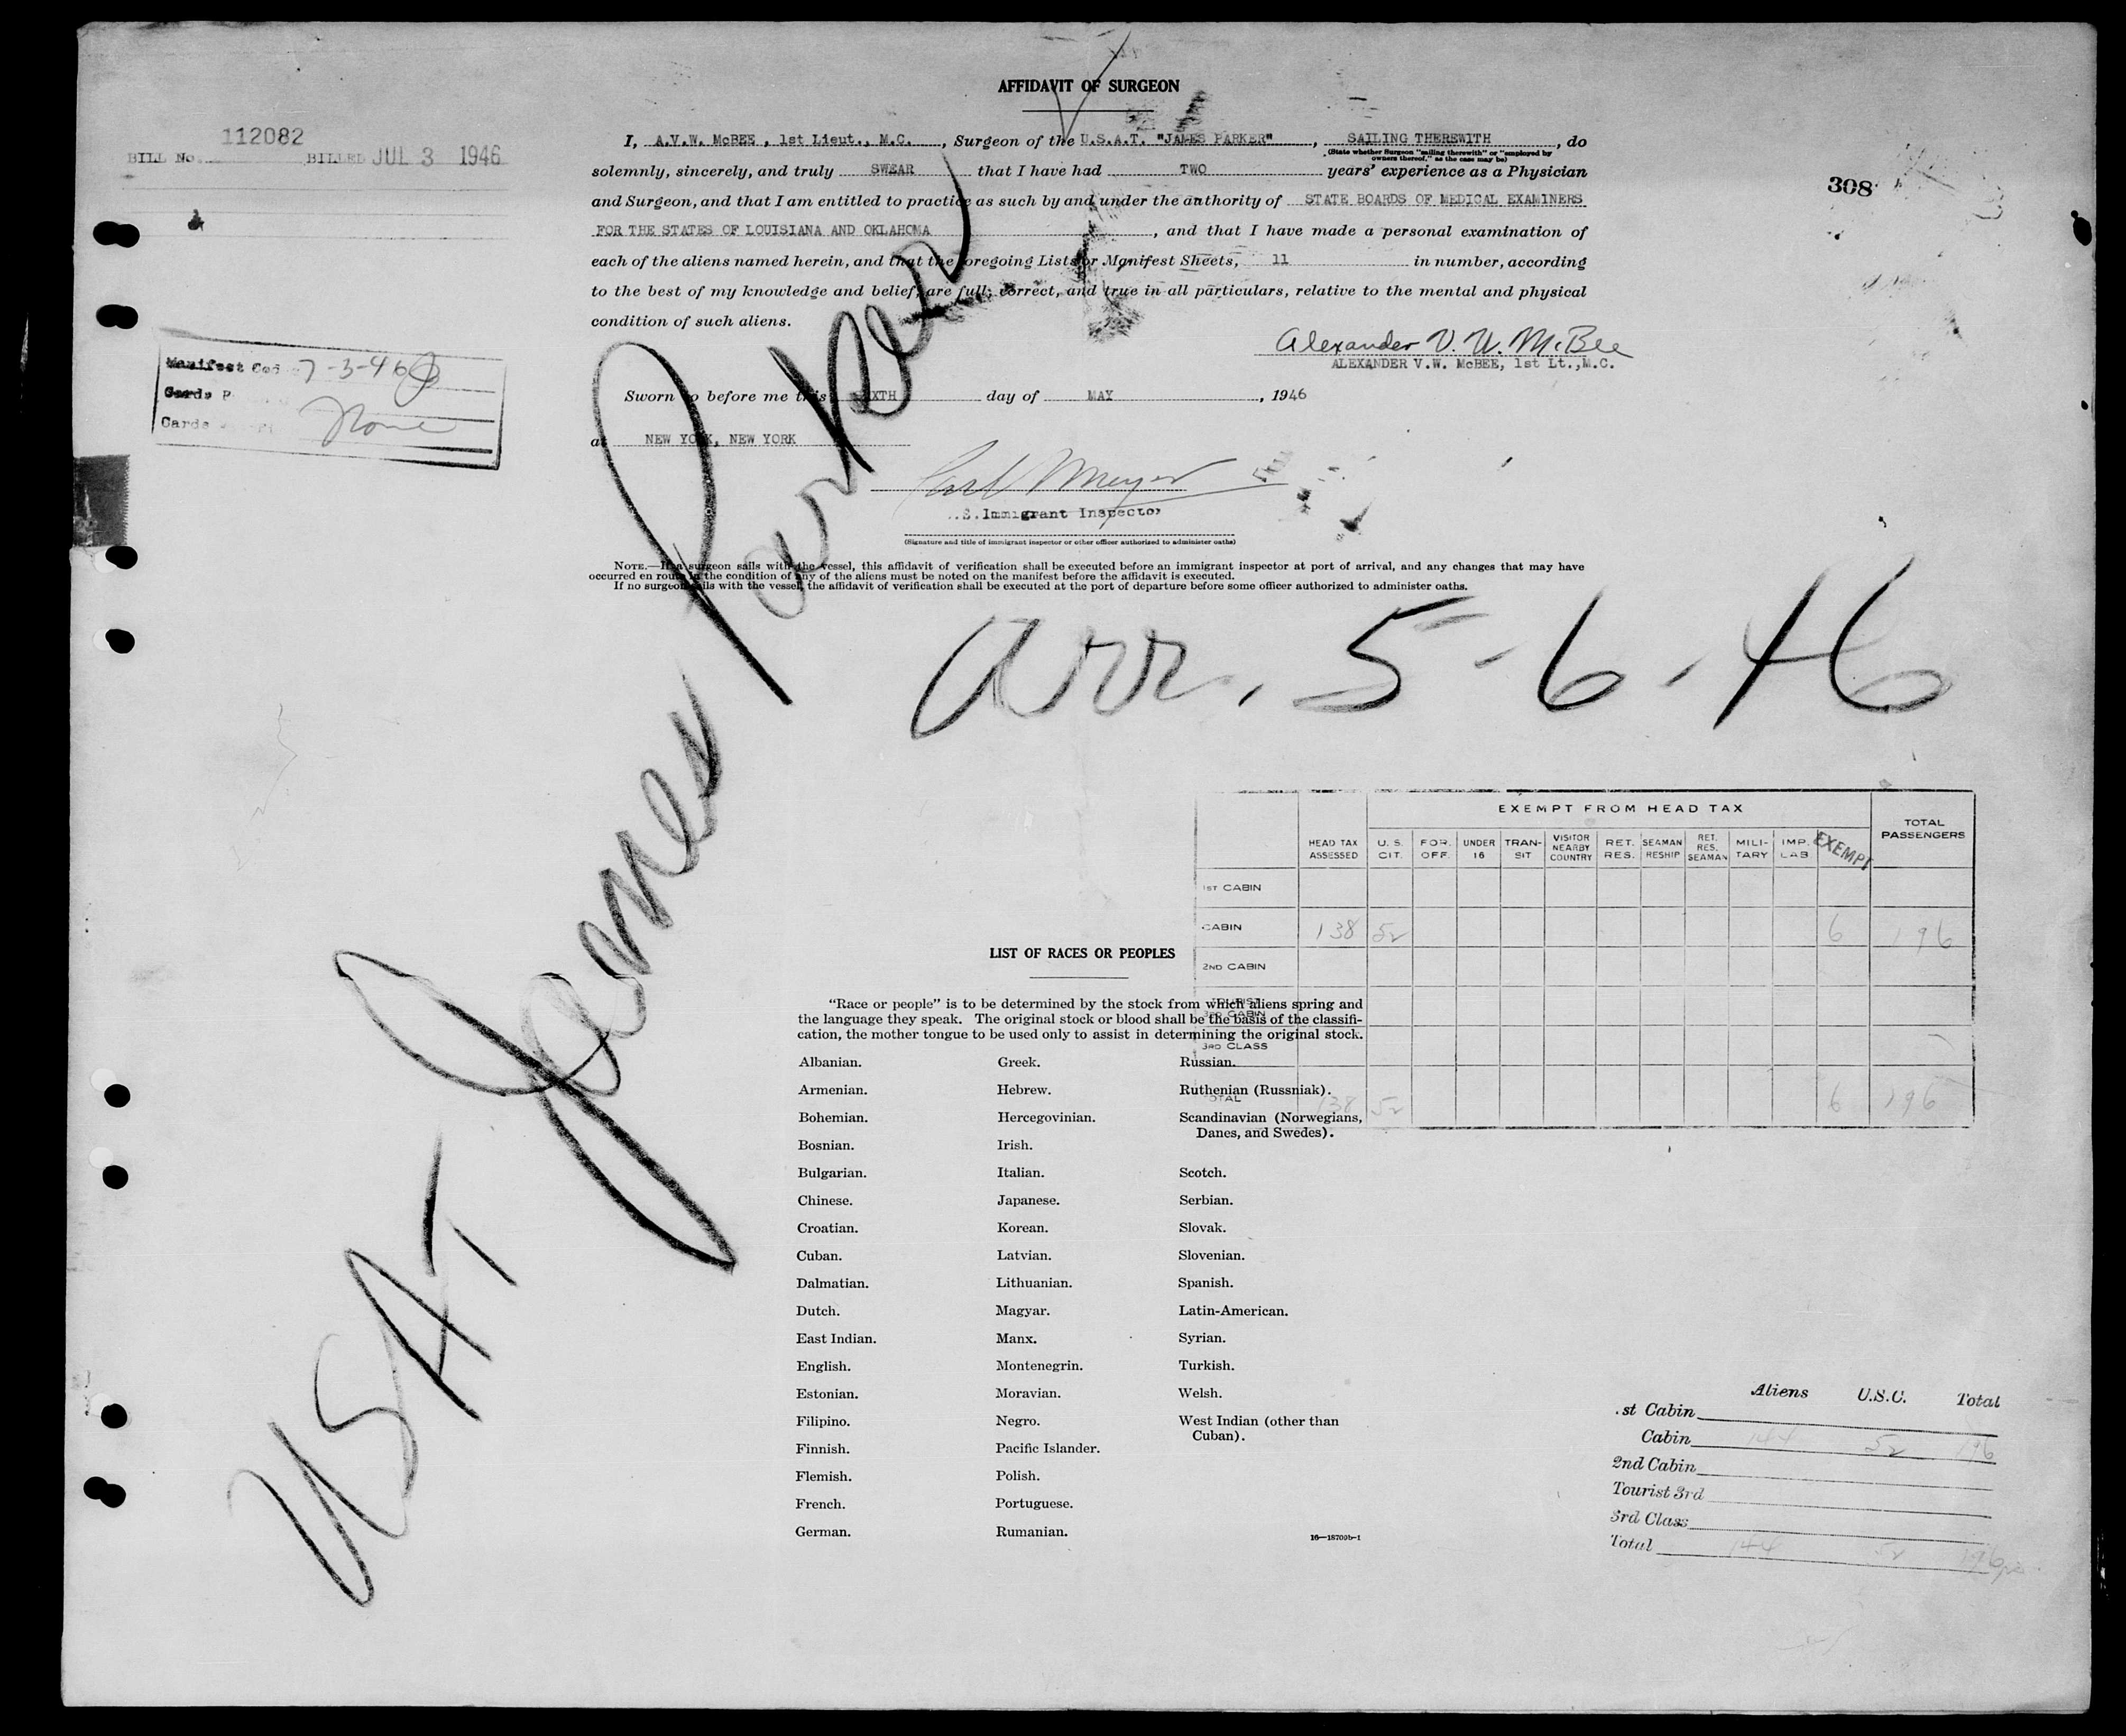 AFFIDAVIT OF SURGEON
112082
BILL No. BILLED JUL 3 1946
308
I, A.V.W. McBEE, 1st Lieut., M.C., Surgeon of the U.S.A.T. "JAMES PARKER", SAILING THEREWITH, do
(State whether Surgeon "sailing therewith" or "employed by
owners thereof," as the case may be)
solemnly, sincerely, and truly SWEAR that I have had TWO years' experience as a Physician
and Surgeon, and that I am entitled to practice as such by and under the authority of STATE BOARDS OF MEDICAL EXAMINERS
FOR THE STATES OF LOUISIANA AND OKLAHOMA, and that I have made a personal examination of
each of the aliens named herein, and that the foregoing Lists or Manifest Sheets, 11 in number, according
to the best of my knowledge and belief, are full, correct, and true in all particulars, relative to the mental and physical
condition of such aliens.
Alexander V. W. McBee
ALEXANDER V.W. McBEE, 1st Lt.,M.C.
Manifest Cod 7-3-46
Cards P
Cards None
Sworn to before me this SIXTH day of MAY, 1946
at NEW YORK, NEW YORK
Carl Meyer
.S.Immigrant Inspector
(Signature and title of immigrant inspector or other officer authorized to administer oaths)
NOTE.—If a surgeon sails with the vessel, this affidavit of verification shall be executed before an immigrant inspector at port of arrival, and any changes that may have
occurred en route in the condition of any of the aliens must be noted on the manifest before the affidavit is executed.
If no surgeon sails with the vessel, the affidavit of verification shall be executed at the port of departure before some officer authorized to administer oaths.
USAT James Parker
arr. 5-6-46
EXEMPT FROM HEAD TAX
HEAD TAX ASSESSED U. S. CIT. FOR. OFF. UNDER 16 TRANSIT VISITOR NEARBY COUNTRY RET. RES. SEAMAN RESHIP RET. RES. SEAMAN MILITARY IMP. LAB EXEMPT TOTAL PASSENGERS
1ST CABIN
CABIN 138 52 6 196
2ND CABIN
TOURIST
3RD CABIN
3RD CLASS
TOTAL 138 52 6 196
LIST OF RACES OR PEOPLES
"Race or people" is to be determined by the stock from which aliens spring and
the language they speak. The original stock or blood shall be the basis of the classifi-
cation, the mother tongue to be used only to assist in determining the original stock.
Albanian. Greek. Russian.
Armenian. Hebrew. Ruthenian (Russniak).
Bohemian. Hercegovinian. Scandinavian (Norwegians,
Danes, and Swedes).
Bosnian. Irish.
Bulgarian. Italian. Scotch.
Chinese. Japanese. Serbian.
Croatian. Korean. Slovak.
Cuban. Latvian. Slovenian.
Dalmatian. Lithuanian. Spanish.
Dutch. Magyar. Latin-American.
East Indian. Manx. Syrian.
English. Montenegrin. Turkish.
Estonian. Moravian. Welsh.
Filipino. Negro. West Indian (other than
Cuban).
Finnish. Pacific Islander.
Flemish. Polish.
French. Portuguese.
German. Rumanian.
16—18709b-1
Aliens U.S.C. Total
.st Cabin
Cabin 144 52 196
2nd Cabin
Tourist 3rd
3rd Class
Total 144 52 196